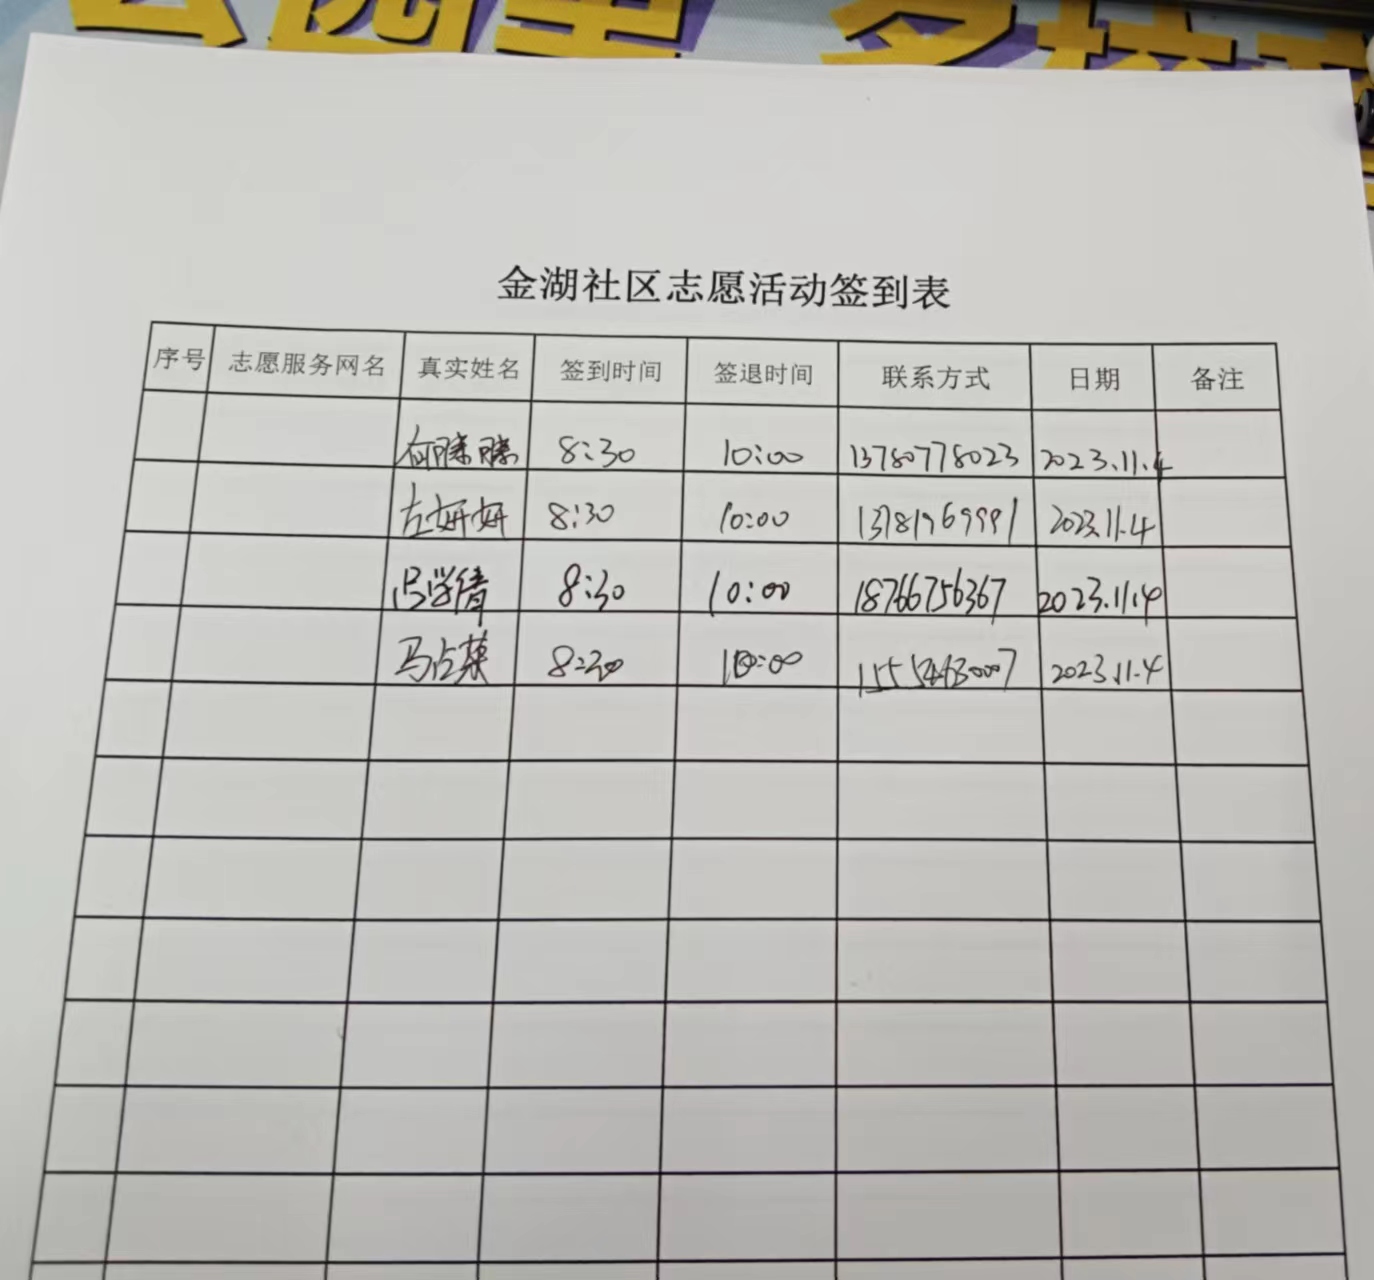 金湖社区志愿活动签到表
序号 志愿服务网名 真实姓名 签到时间 签退时间 联系方式 日期 备注
8:30 10:00 13780778023 2023.11.4
左妍妍 8:30 10:00 2023.11.4
冯学倩 8:30 10:00 18766756367 2023.11.4
马占英 8:30 10:00 2023.11.4